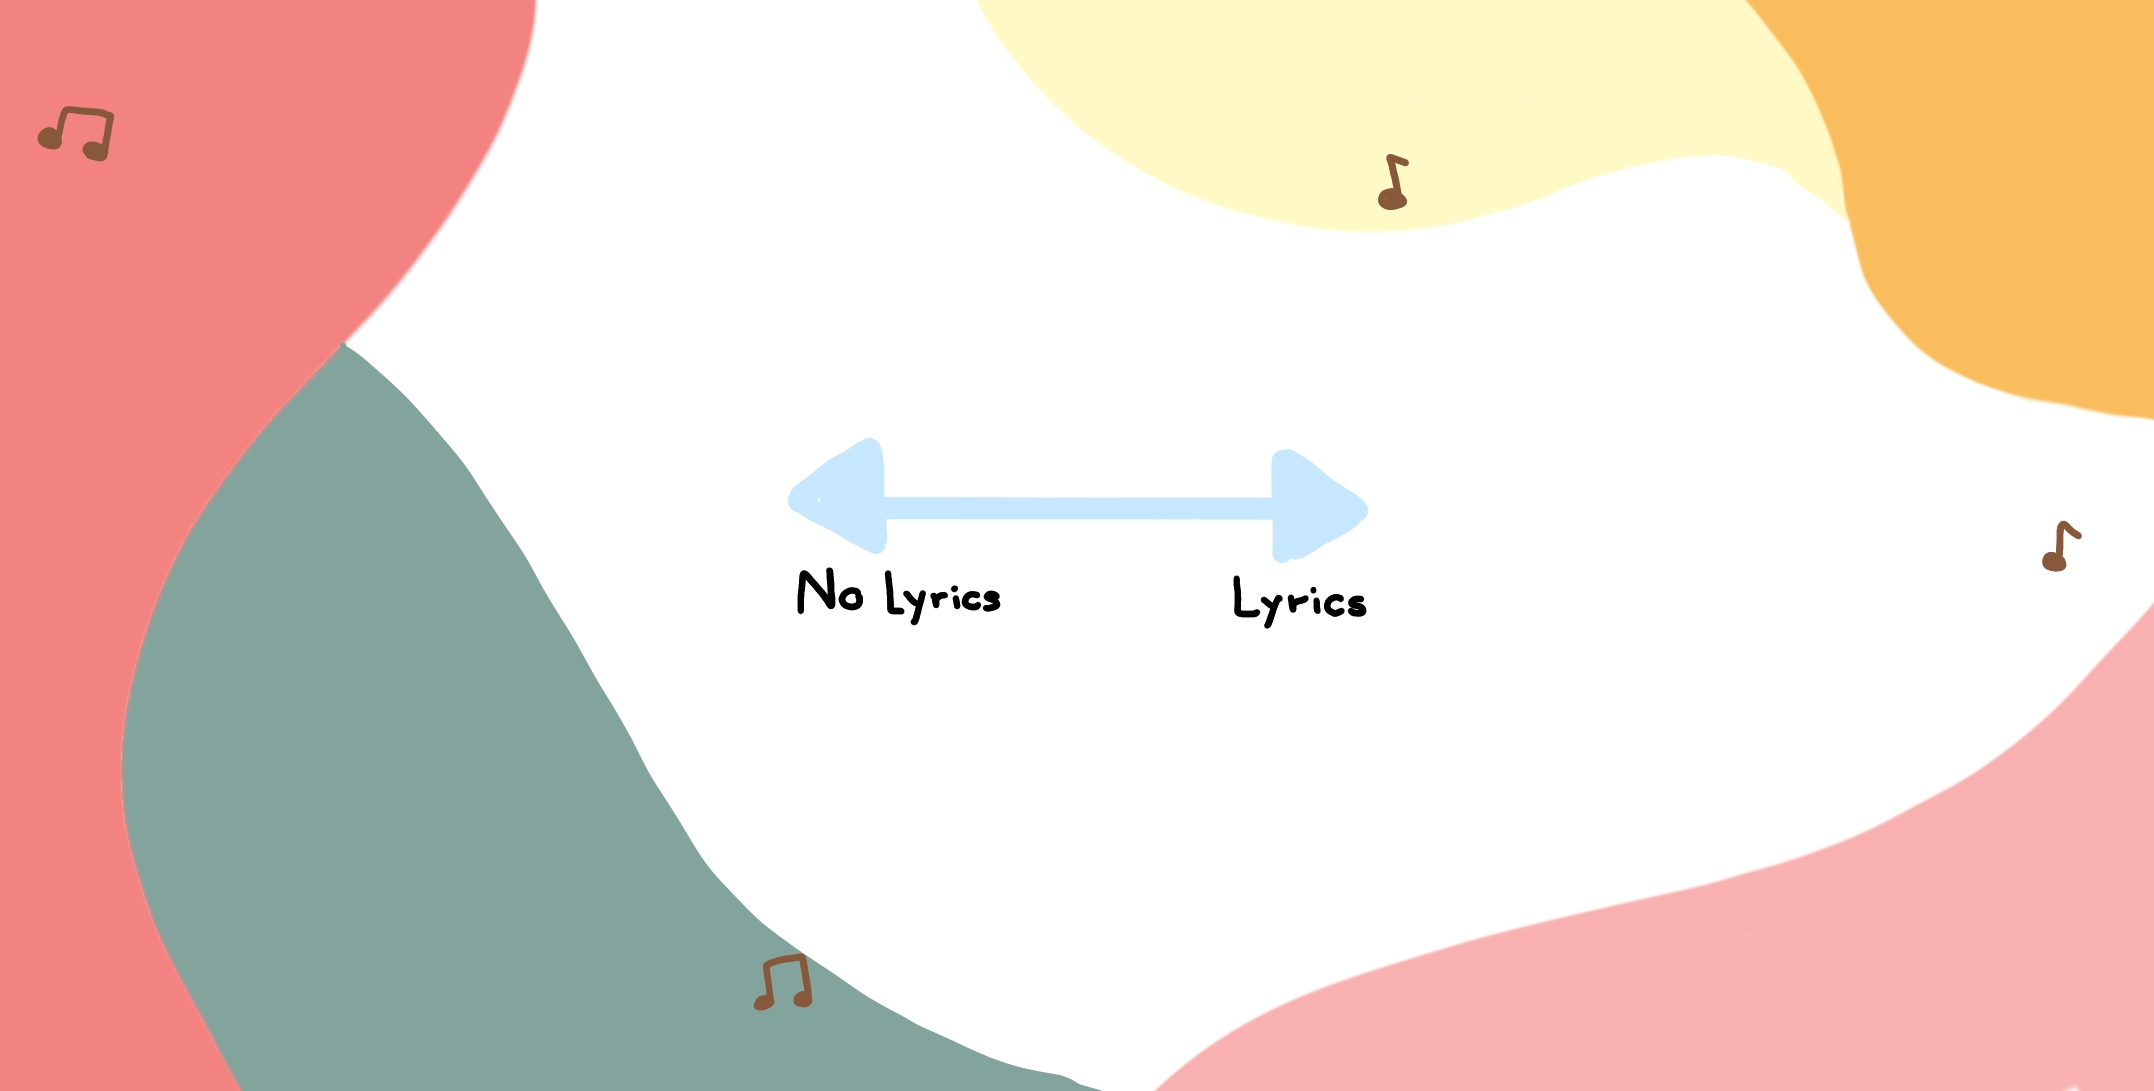 No Lyrics
Lyrics